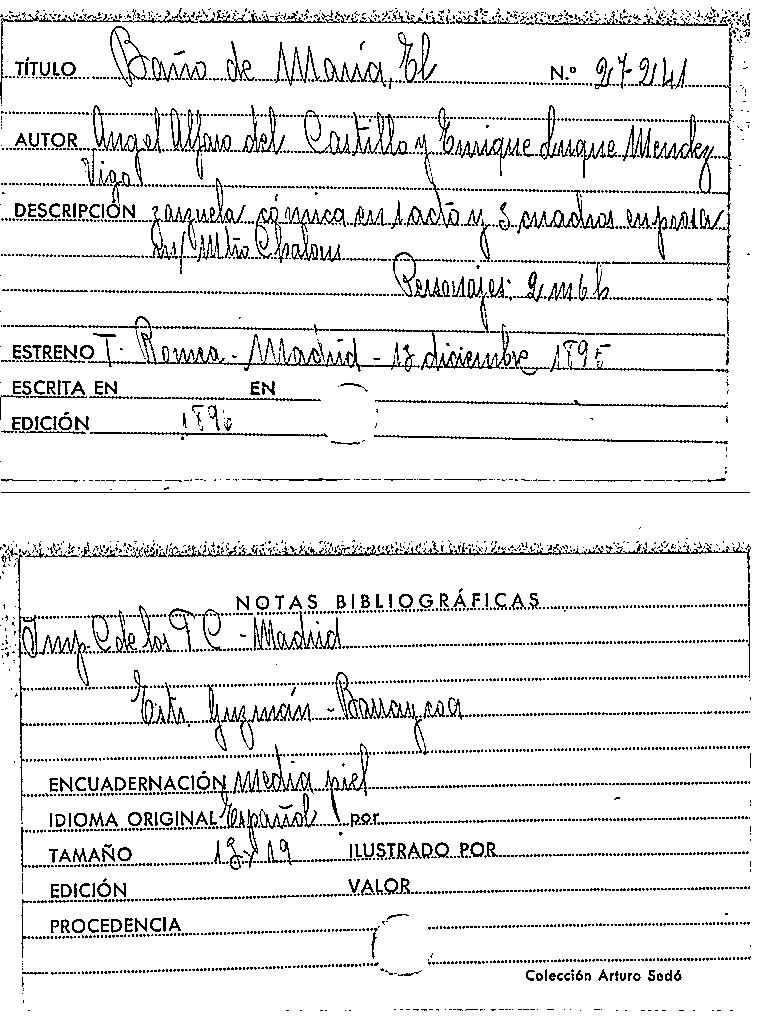 TÍTULO Baño de María, El N.º 27-241
AUTOR Angel Alfaro del Castillo y Enrique Luque Mendez
Vigo
DESCRIPCIÓN zarzuela cómica en 1 acto y 3 cuadros en prosa
Mtro Chalons
Personajes: 2 m 6 h
ESTRENO T. Romea - Madrid - 13 diciembre 1895
ESCRITA EN EN
EDICIÓN 1896
NOTAS BIBLIOGRÁFICAS
Imp C de los T C - Madrid
Guzmán - Barraycoa
ENCUADERNACIÓN Media piel
IDIOMA ORIGINAL Español por
TAMAÑO 13 x 19 ILUSTRADO POR
EDICIÓN VALOR
PROCEDENCIA
Colección Arturo Sedó